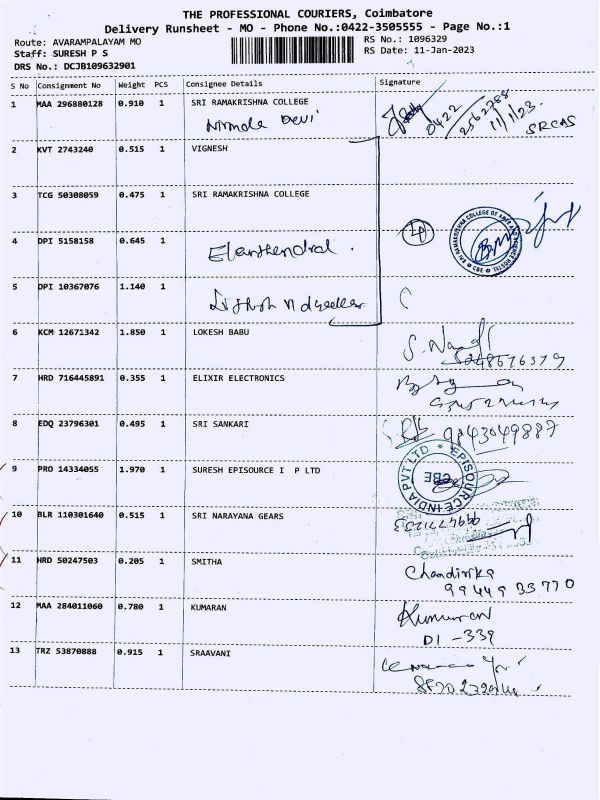 THE PROFESSIONAL COURIERS, Coimbatore
Delivery Runsheet - MO - Phone No.:0422-3505555 - Page No.:1
Route: AVARAMPALAYAM MO
RS No.: 1096329
Staff: SURESH P S
RS Date: 11-Jan-2023
DRS No.: DCJB109632901
S No Consignment No Weight PCS Consignee Details Signature
1 MAA 296880128 0.910 1 SRI RAMAKRISHNA COLLEGE
Nirmala Devi 0422 2562788 11/1/23 SRCAS
2 KVT 2743240 0.515 1 VIGNESH
3 TCG 50308059 0.475 1 SRI RAMAKRISHNA COLLEGE
SRI RAMAKRISHNA COLLEGE OF ARTS AND SCIENCE HOSTEL CBE
4 DPI 5158158 0.645 1
5 DPI 10367076 1.140 1
6 KCM 12671342 1.850 1 LOKESH BABU
7 HRD 716445891 0.355 1 ELIXIR ELECTRONICS
8 EDQ 23796301 0.495 1 SRI SANKARI
9843049887
9 PRO 14334055 1.970 1 SURESH EPISOURCE I P LTD
EPISOURCE INDIA PVT LTD CBE
10 BLR 110301640 0.515 1 SRI NARAYANA GEARS
11 HRD 50247503 0.205 1 SMITHA
Chandirika
99449 35770
12 MAA 284011060 0.780 1 KUMARAN
Kumaran
DI -339
13 TRZ 53870888 0.915 1 SRAAVANI